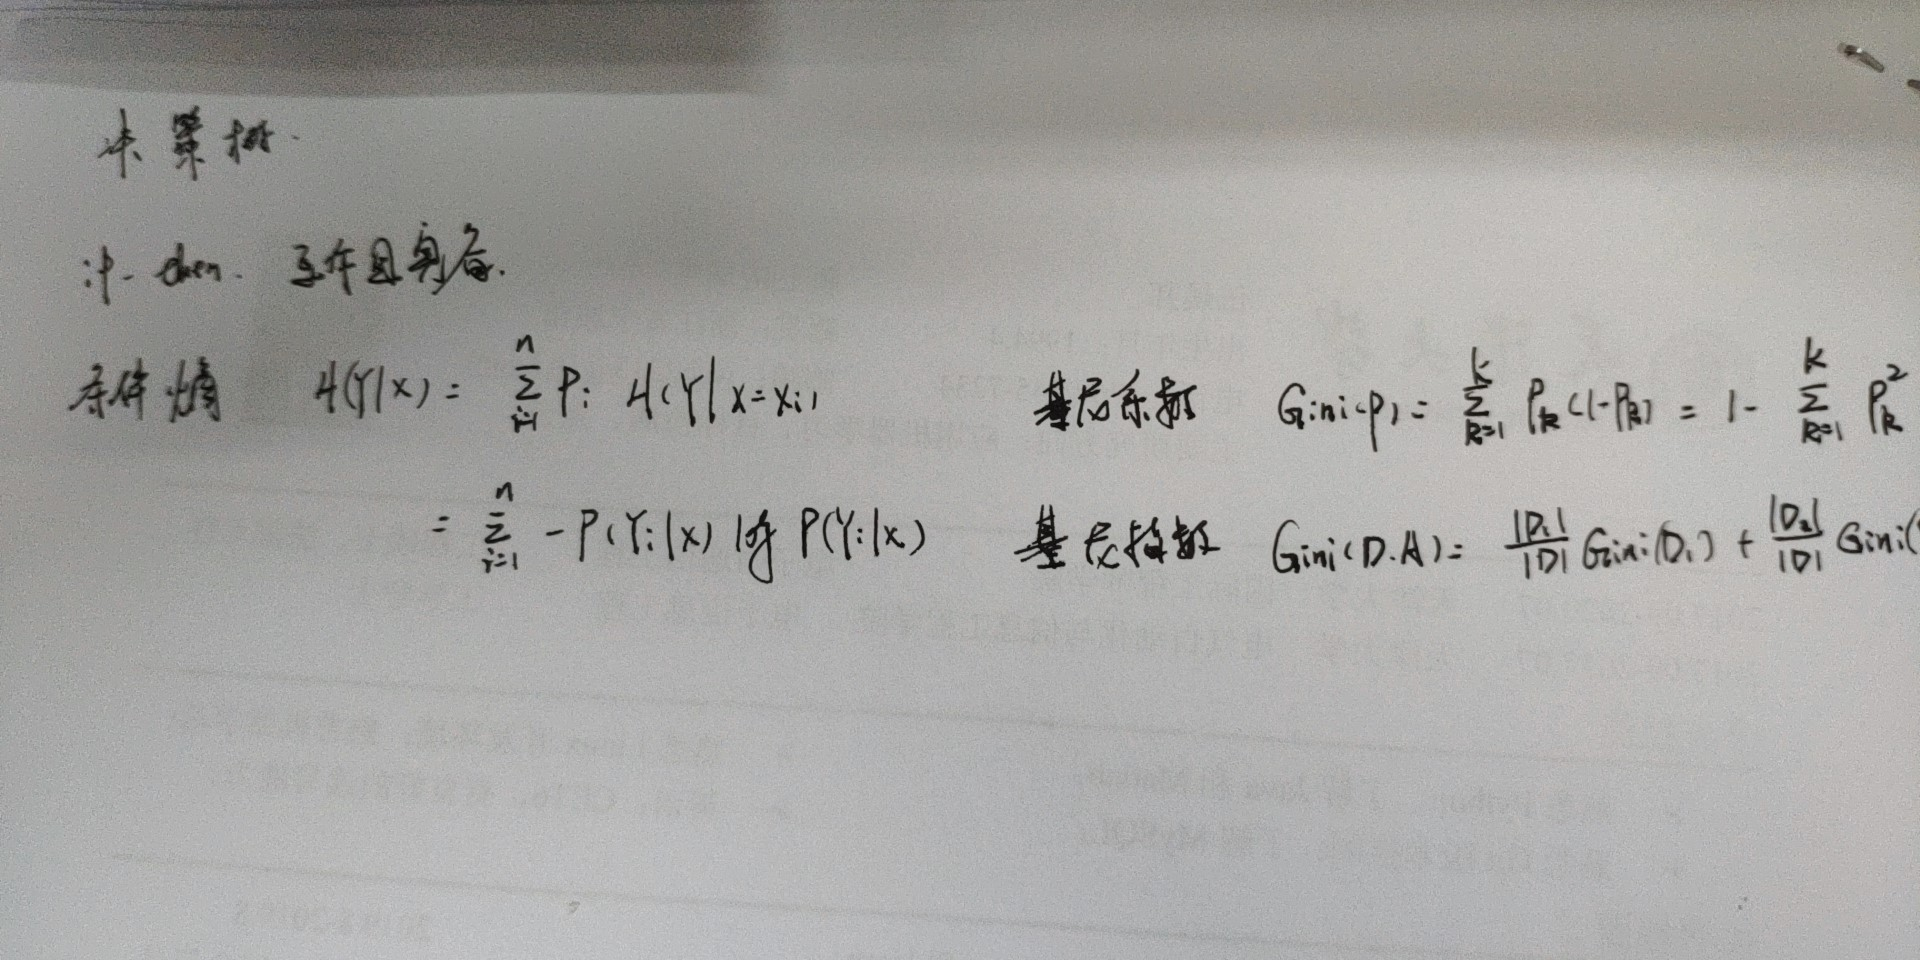 决策树.
if - then. 互斥且完备.
条件熵 H(Y|X) = \sum_{i=1}^{n} P_i H(Y|X=x_i)
= \sum_{i=1}^{n} -P(Y_i|X) log P(Y_i|X)
基尼系数 Gini(p) = \sum_{k=1}^{K} P_k(1-P_k) = 1 - \sum_{k=1}^{K} P_k^2
基尼指数 Gini(D.A) = \frac{|D_1|}{|D|} Gini(D_1) + \frac{|D_2|}{|D|} Gini(